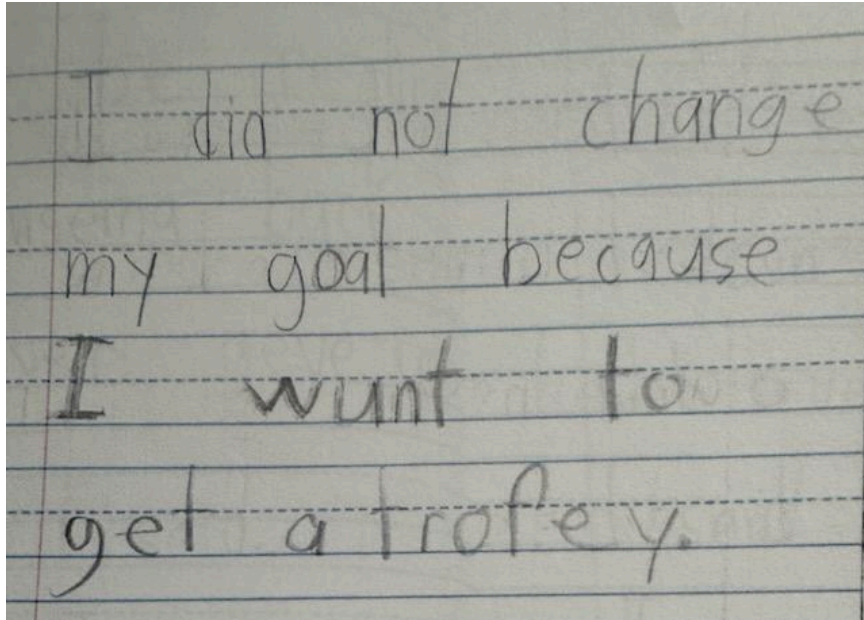 I did not change
my goal because
I wunt to
get a trofey.